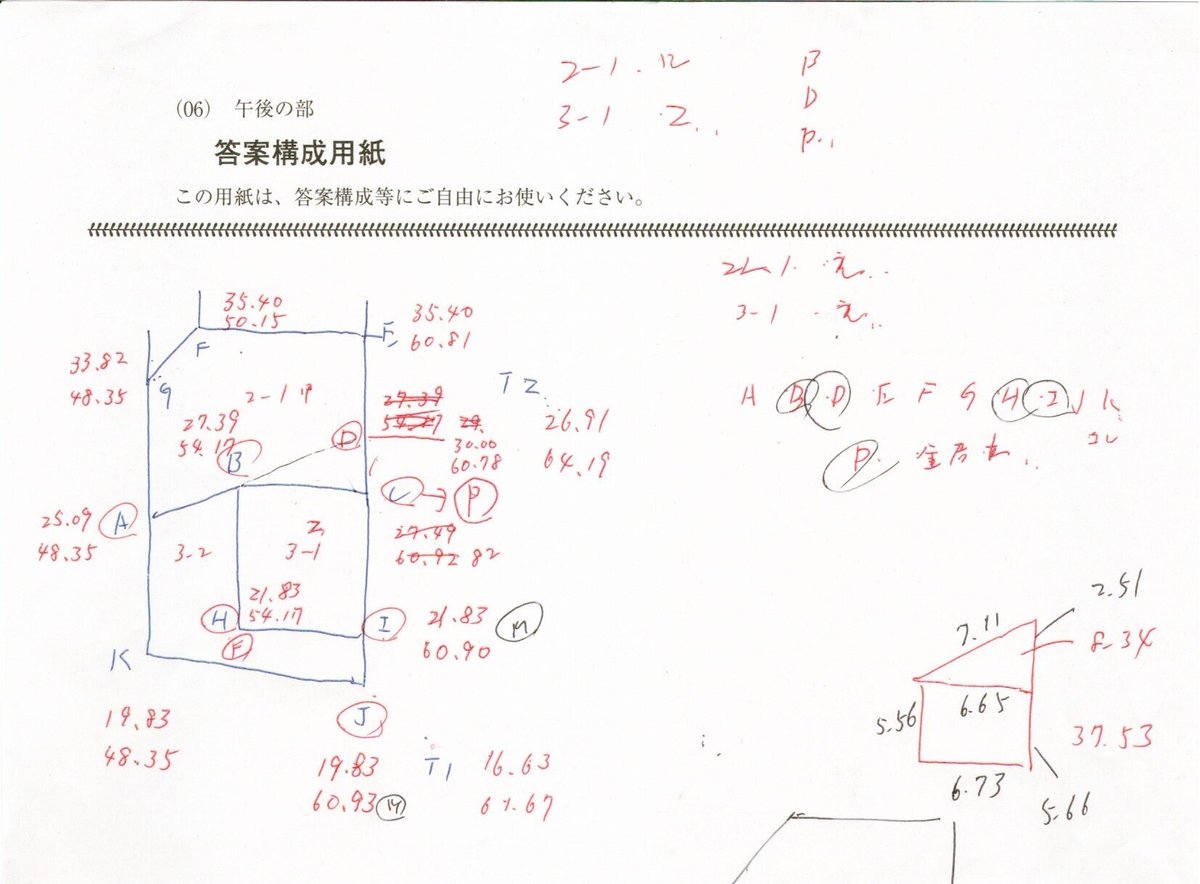 2-1
B
(06) 午後の部
3-1
D
P
答案構成用紙
この用紙は、答案構成等にご自由にお使いください。
35.40
50.15
F
35.40
60.81
E
33.82
48.35
G
2-1
T2
26.91
64.19
27.39
54.17
B
D
27.39
54.17
30.00
60.78
A B D E F G H I J K
P
25.09
48.35
A
C → P
3-2
3-1
27.49
60.92 82
21.83
54.17
H
F
I
21.83
60.90
M
K
19.83
48.35
J
19.83
60.93
M
T1
16.63
2.51
7.11
8.34
6.65
5.56
37.53
6.73
5.66